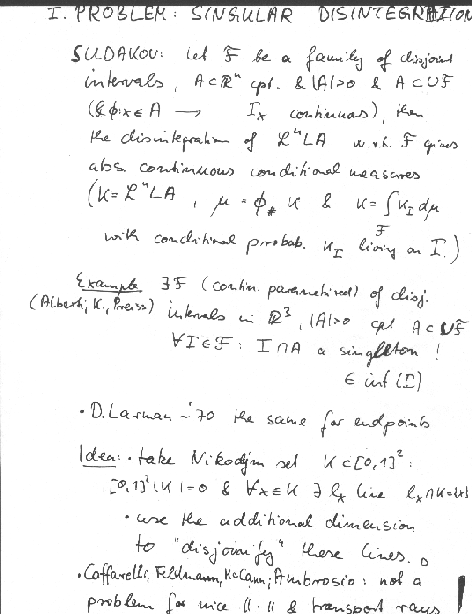 I. PROBLEM: SINGULAR DISINTEGRATION
SUDAKOV: let F be a family of disjoint
intervals, A⊂ℝⁿ cpt. & |A|>0 & A⊂∪F
(& φ: x∈A → I_x continuous), then
the disintegration of ℒⁿ⌞A w.r.t. F gives
abs. continuous conditional measures
(κ=ℒⁿ⌞A, μ=φ_# κ & κ=∫_F κ_I dμ
with conditional probab. κ_I living on I.)
Example ∃F (contin. parametrized) of disj.
(Alberti, K., Preiss) intervals in ℝ³, |A|>0 cpt A⊂∪F
∀I∈F: I∩A a singleton !
∈ int(I)
• D. Larman ~'70 the same for endpoints
Idea: • take Nikodým set K⊂[0,1]²:
[0,1]²\K|=0 & ∀x∈K ∃ l_x line l_x∩K={x}
• use the additional dimension
to "disjointify" these lines.
• Caffarelli, Feldmann, McCann, Ambrosio: not a
problem for nice ‖·‖ & transport rays !